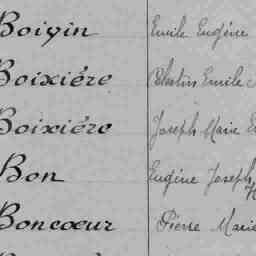 Boigin Emile Eugène
Boixiére Célestin Emile
Boixiére Joseph Marie
Bon Eugène Joseph
Boncœur Pierre Marie